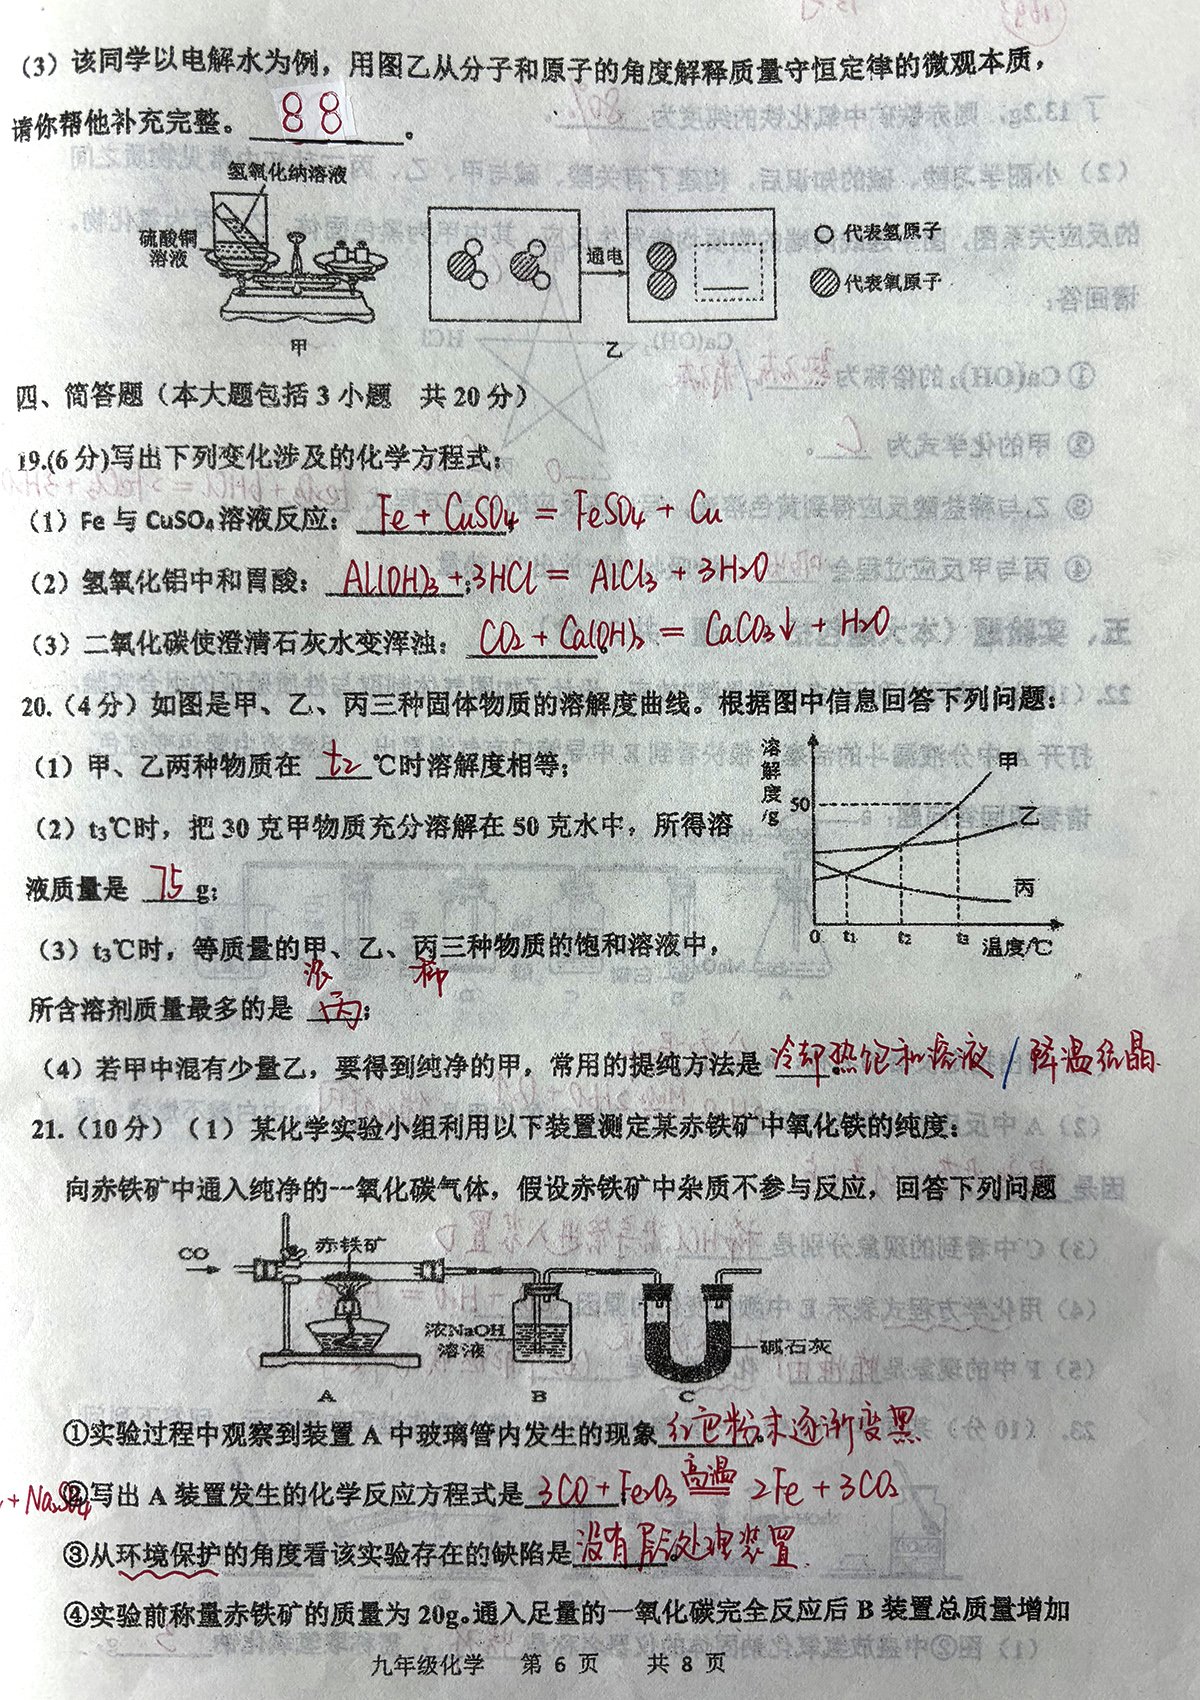 (3)该同学以电解水为例，用图乙从分子和原子的角度解释质量守恒定律的微观本质，
请你帮他补充完整。 88 。
氢氧化纳溶液
硫酸铜
溶液
甲
通电
乙
代表氢原子
代表氧原子
四、简答题（本大题包括3小题 共20分）
19.(6分)写出下列变化涉及的化学方程式：
(1) Fe与CuSO₄溶液反应： Fe + CuSO₄ = FeSO₄ + Cu
(2) 氢氧化铝中和胃酸： Al(OH)₃ + 3HCl = AlCl₃ + 3H₂O
(3) 二氧化碳使澄清石灰水变浑浊： CO₂ + Ca(OH)₂ = CaCO₃↓ + H₂O
20.（4分）如图是甲、乙、丙三种固体物质的溶解度曲线。根据图中信息回答下列问题：
(1) 甲、乙两种物质在 t₂ ℃时溶解度相等；
(2) t₃℃时，把30克甲物质充分溶解在50克水中，所得溶
液质量是 75 g；
(3) t₃℃时，等质量的甲、乙、丙三种物质的饱和溶液中，
所含溶剂质量最多的是 丙；
溶解度/g
50
甲
乙
丙
0 t₁ t₂ t₃ 温度/℃
(4) 若甲中混有少量乙，要得到纯净的甲，常用的提纯方法是 冷却热饱和溶液 / 降温结晶.
21.（10分）（1）某化学实验小组利用以下装置测定某赤铁矿中氧化铁的纯度：
向赤铁矿中通入纯净的一氧化碳气体，假设赤铁矿中杂质不参与反应，回答下列问题
CO
赤铁矿
浓NaOH
溶液
碱石灰
A B C
①实验过程中观察到装置A中玻璃管内发生的现象 红色粉末逐渐变黑
+ Na₂SO₄
②写出A装置发生的化学反应方程式是 3CO + Fe₂O₃ 高温 2Fe + 3CO₂
③从环境保护的角度看该实验存在的缺陷是 没有尾气处理装置.
④实验前称量赤铁矿的质量为20g。通入足量的一氧化碳完全反应后B装置总质量增加
九年级化学 第 6 页 共 8 页